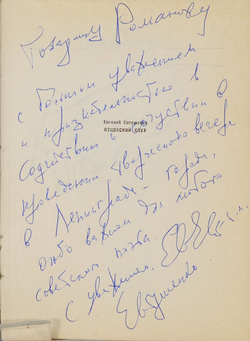 Товарищу Романову
с большим уважением
и признательностью в
содействии и участии в
Евгений Евтушенко
ОТЦОВСКИЙ СЛУХ
проведении творческого вечера
в Ленинграде - городе,
особо важном для любого
советского поэта.
С уважением
Евтушенко